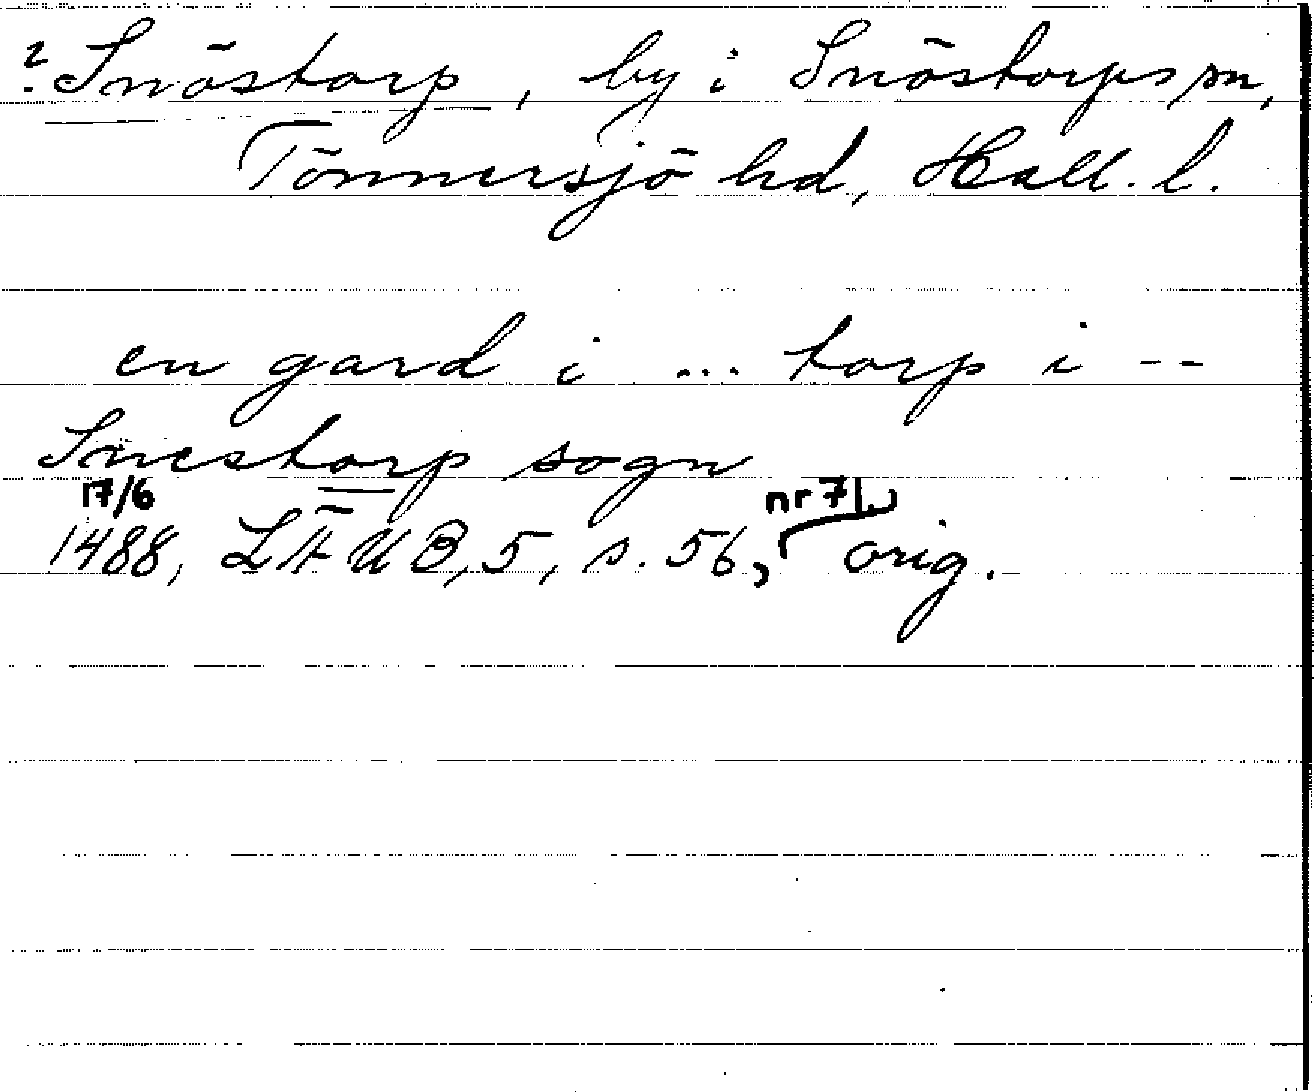 ? Snöstorp, by i Snöstorps sn,
Tönnersjö hd, Hall. l.
en gard i ... torp i --
Snestorp sogn
17/6 nr 71,
1488, LÄUB, 5, s. 56, orig.